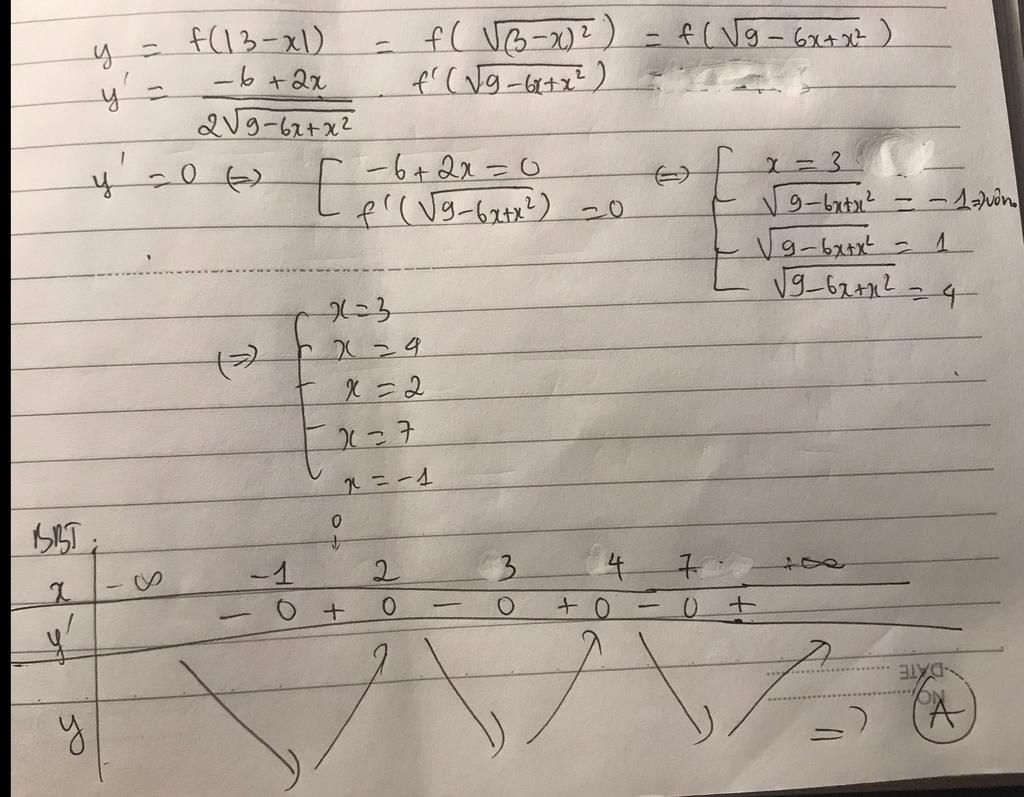 y = f(|3-x|) = f(√(3-x)²) = f(√9-6x+x²)
y' = -6+2x / 2√9-6x+x² . f'(√9-6x+x²)
y' = 0 (=) [ -6+2x=0 (=) [ x = 3
f'(√9-6x+x²) = 0 √9-6x+x² = -1 => vôn.
√9-6x+x² = 1
√9-6x+x² = 4
x = 3
(=) x = 4
x = 2
x = 7
x = -1
BBT: 0 ↓
x -∞ -1 2 3 4 7 +∞
y' - 0 + 0 - 0 + 0 - 0 +
y
DATE
NO
=) A